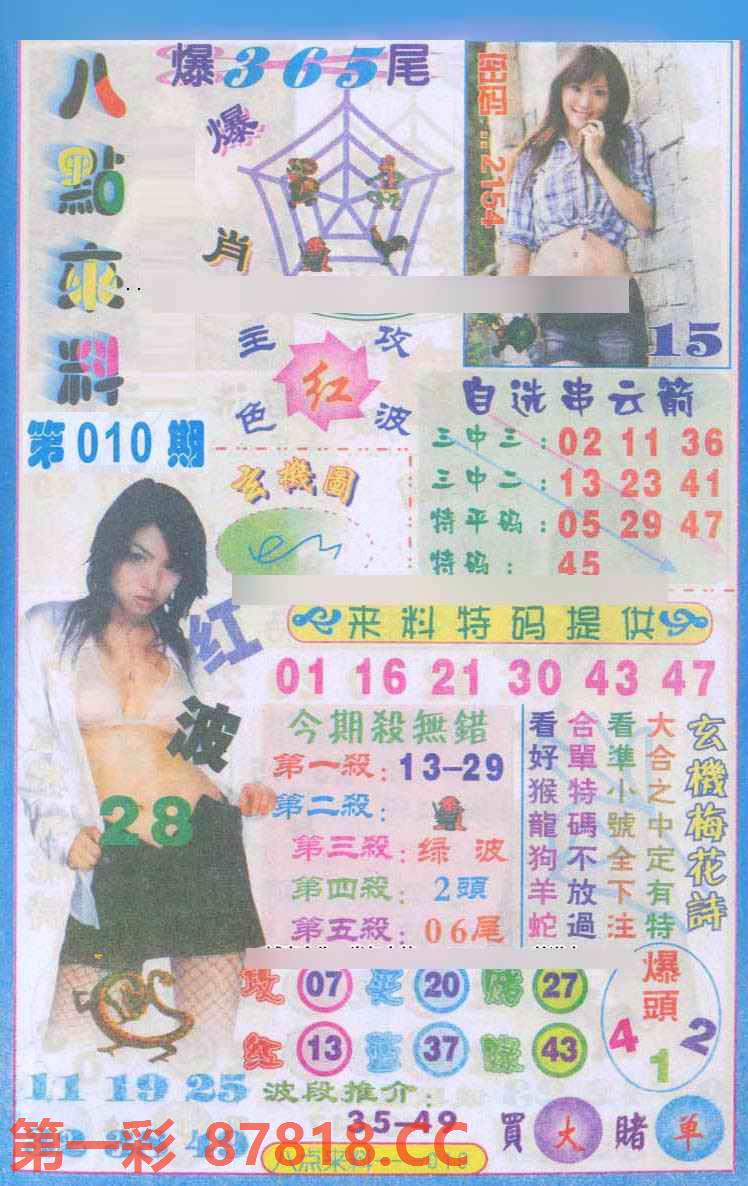 八點來料
第010期
爆365尾
爆肖
密码 2154
15
主攻
红
色波
自选串云箭
三中三：02 11 36
三中二：13 23 41
特平码：05 29 47
特码：45
玄機圖
来料特码提供
01 16 21 30 43 47
红波
28
今期殺無錯
第一殺：13-29
第二殺：
第三殺：绿波
第四殺：2頭
第五殺：06尾
玄機梅花詩
大合之中定有特
看準小號全下注
合單特碼不放過
看好猴龍狗羊蛇
07 20 27
红 13 蓝 37 綠 43
爆頭
4 1 2
11 19 25
波段推介：
35-49
買大賭單
第一彩 87818.CC
八点来料